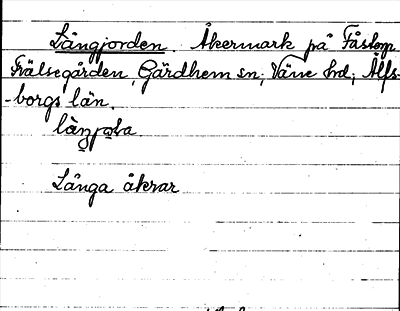 Långjorden. Åkermark på Fåstorp
Frälsegården, Gärdhem sn; Väne hd; Älfs-
-borgs län.
Långa åkrar